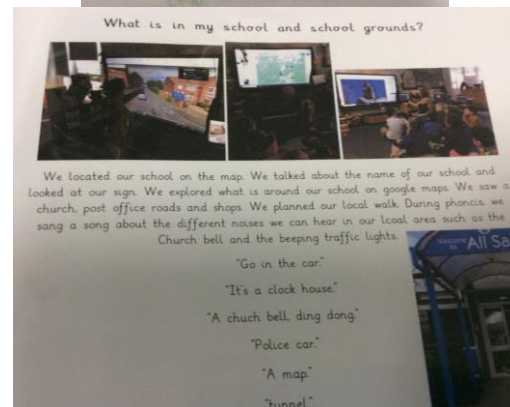 What is in my school and school grounds?
We located our school on the map. We talked about the name of our school and
looked at our sign. We explored what is around our school on google maps. We saw a
church, post office roads and shops. We planned our local walk. During phoncis, we
sang a song about the different noises we can hear in our lcoal area such as the
Church bell and the beeping traffic lights.
Welcome to All Sa
"Go in the car."
"It's a clock house."
"A chuch bell, ding dong."
"Police car."
"A map."
"tunnel."